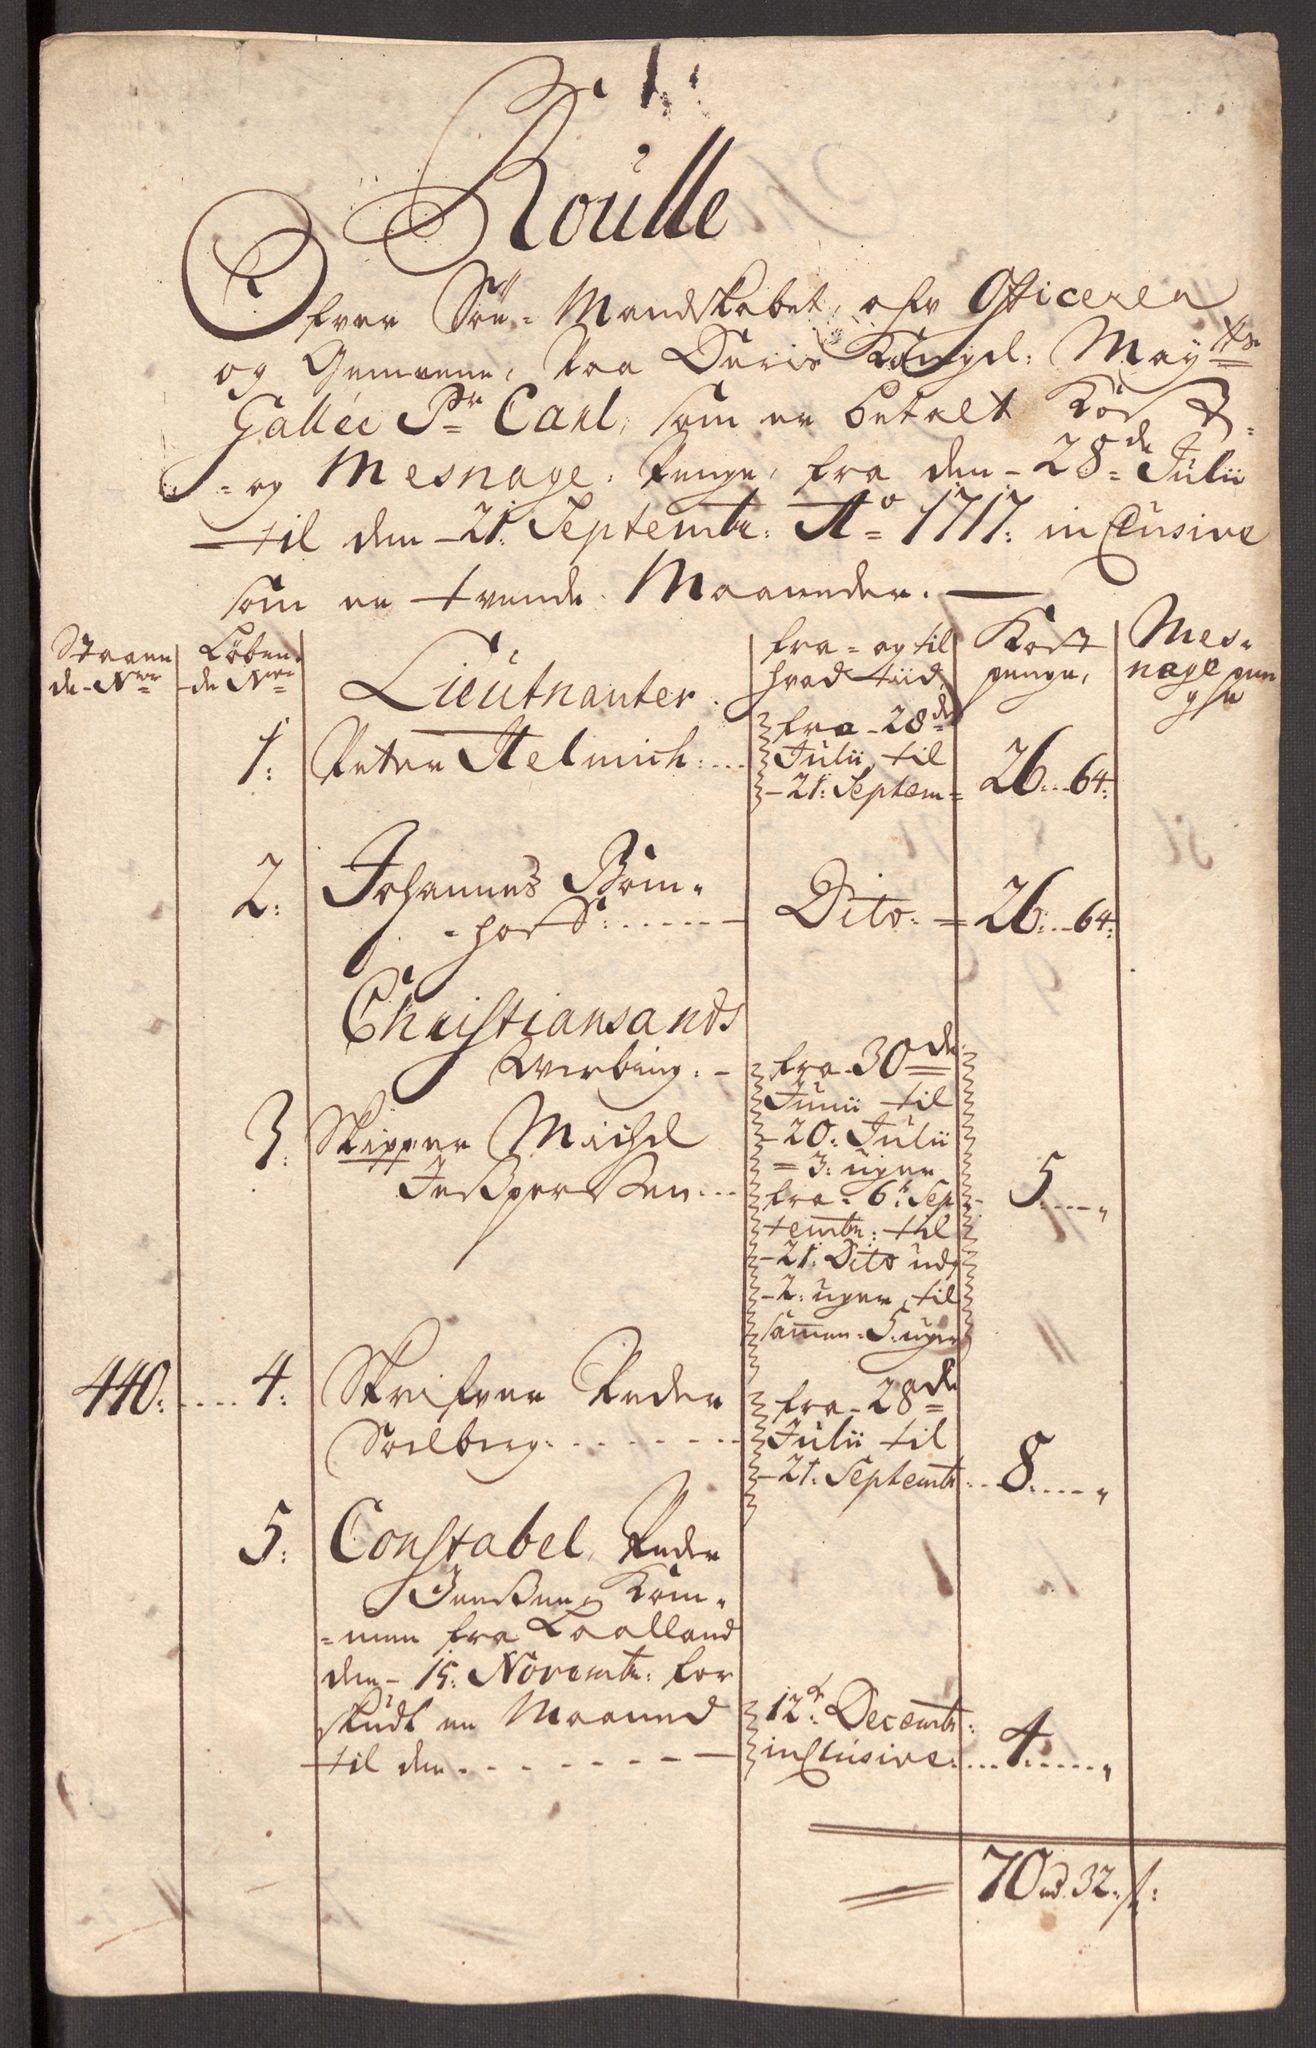 1.
Roulle
Ofver Söe-Mandskabet, afv Officerer
og Gemeene, Paa Deris Kongel: Mayts
Galléi Pr Carl, som er betalt Kost
- og Mesnage-Penge, fra den 28de Julii
til den 21 Septembr: Ao 1717: inclusive
som er tvende Maaneder.
Staaen Löben- Lieutnanter. fra- og til Kost Mes-
de Nr de Nr hvad tiid penge, nage pen
ge
1: Peter Helmich: fra 28de Julii til 21: Septem= 26..64:
2: Johannes Bom-
horst: Dito. 26..64:
Christiansands
Hverbing:
3: Skipper Michel
Jesspersen... fra 30de
Junii til
20: Julii
= 3: uger
fra 6t Sep
tembr: til
21: Dito udj
2: uger, til
samen 5 uger 5....,,
440: 4: Skrifver Peder
Soelberg: fra 28de
Julii til
21: Septembr 8....,,
5: Constabel, Peder
Jenssen, Kom-
men fra Laalland
den 15: Novembr: for
skudt en Maaned
til den 12te Decembr:
inclusive: 4....,,
70 rd. 32 s: